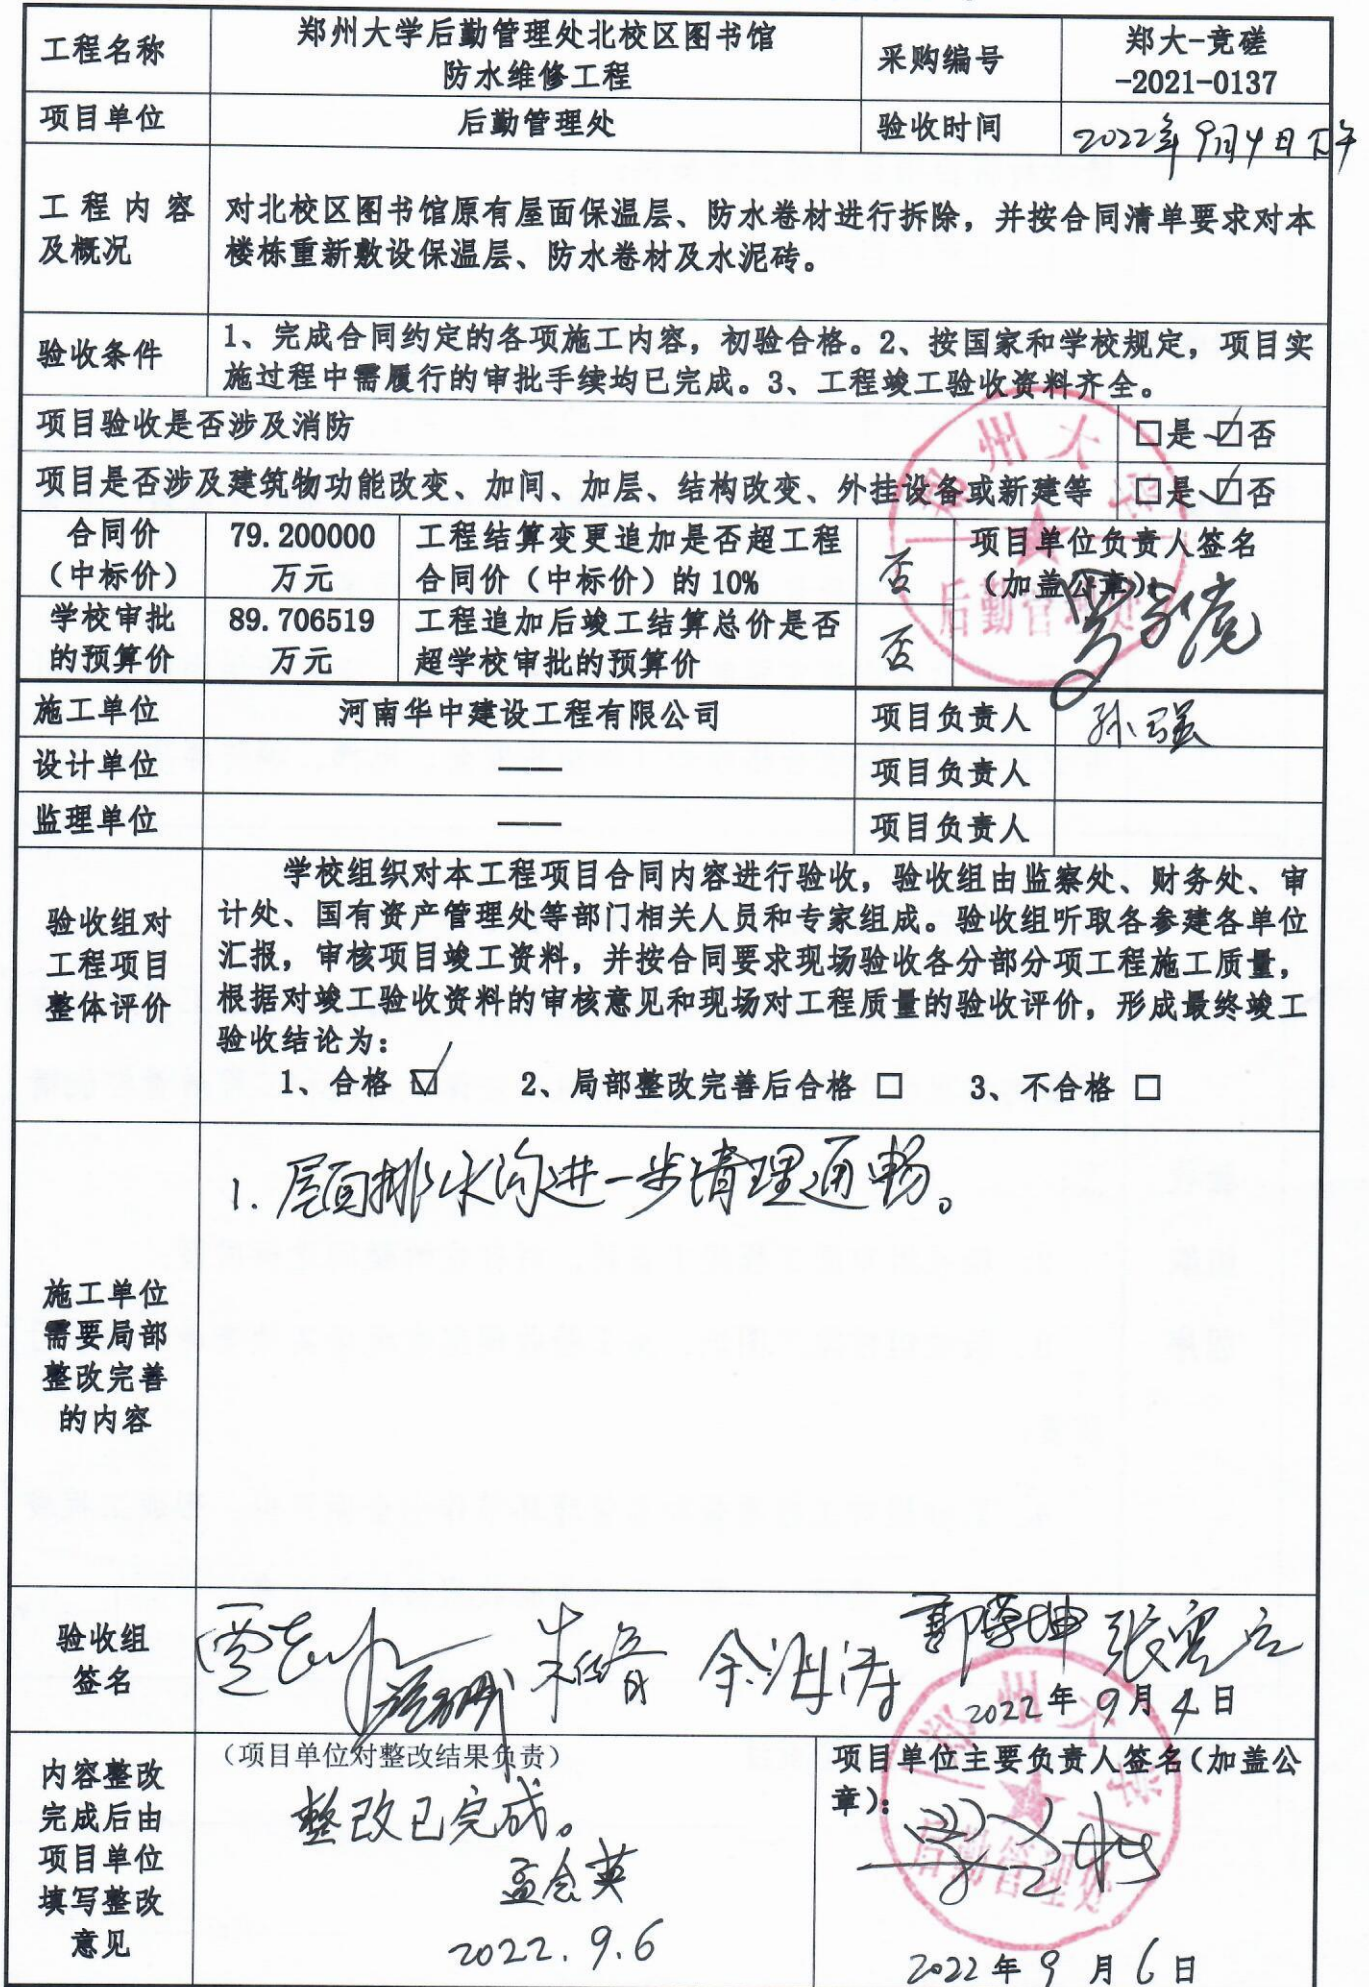 工程名称
郑州大学后勤管理处北校区图书馆
防水维修工程
采购编号
郑大-竞磋
-2021-0137
项目单位
后勤管理处
验收时间
2022年9月4日下午
工程内容
及概况
对北校区图书馆原有屋面保温层、防水卷材进行拆除，并按合同清单要求对本
楼栋重新敷设保温层、防水卷材及水泥砖。
验收条件
1、完成合同约定的各项施工内容，初验合格。2、按国家和学校规定，项目实
施过程中需履行的审批手续均已完成。3、工程竣工验收资料齐全。
项目验收是否涉及消防
□是 ☑否
项目是否涉及建筑物功能改变、加间、加层、结构改变、外挂设备或新建等
□是 ☑否
合同价
（中标价）
79.200000
万元
工程结算变更追加是否超工程
合同价（中标价）的10%
否
项目单位负责人签名
（加盖公章）：
郑州大学
后勤管理处
学校审批
的预算价
89.706519
万元
工程追加后竣工结算总价是否
超学校审批的预算价
否
施工单位
河南华中建设工程有限公司
项目负责人
孙强
设计单位
——
项目负责人
监理单位
——
项目负责人
验收组对
工程项目
整体评价
学校组织对本工程项目合同内容进行验收，验收组由监察处、财务处、审
计处、国有资产管理处等部门相关人员和专家组成。验收组听取各参建各单位
汇报，审核项目竣工资料，并按合同要求现场验收各分部分项工程施工质量，
根据对竣工验收资料的审核意见和现场对工程质量的验收评价，形成最终竣工
验收结论为：
1、合格 ☑ 2、局部整改完善后合格 □ 3、不合格 □
施工单位
需要局部
整改完善
的内容
1. 屋面排水沟进一步清理通畅。
验收组
签名
2022年9月4日
内容整改
完成后由
项目单位
填写整改
意见
（项目单位对整改结果负责）
整改已完成。
孟会英
2022.9.6
项目单位主要负责人签名（加盖公
章）：
郑州大学
后勤管理处
2022年9月6日